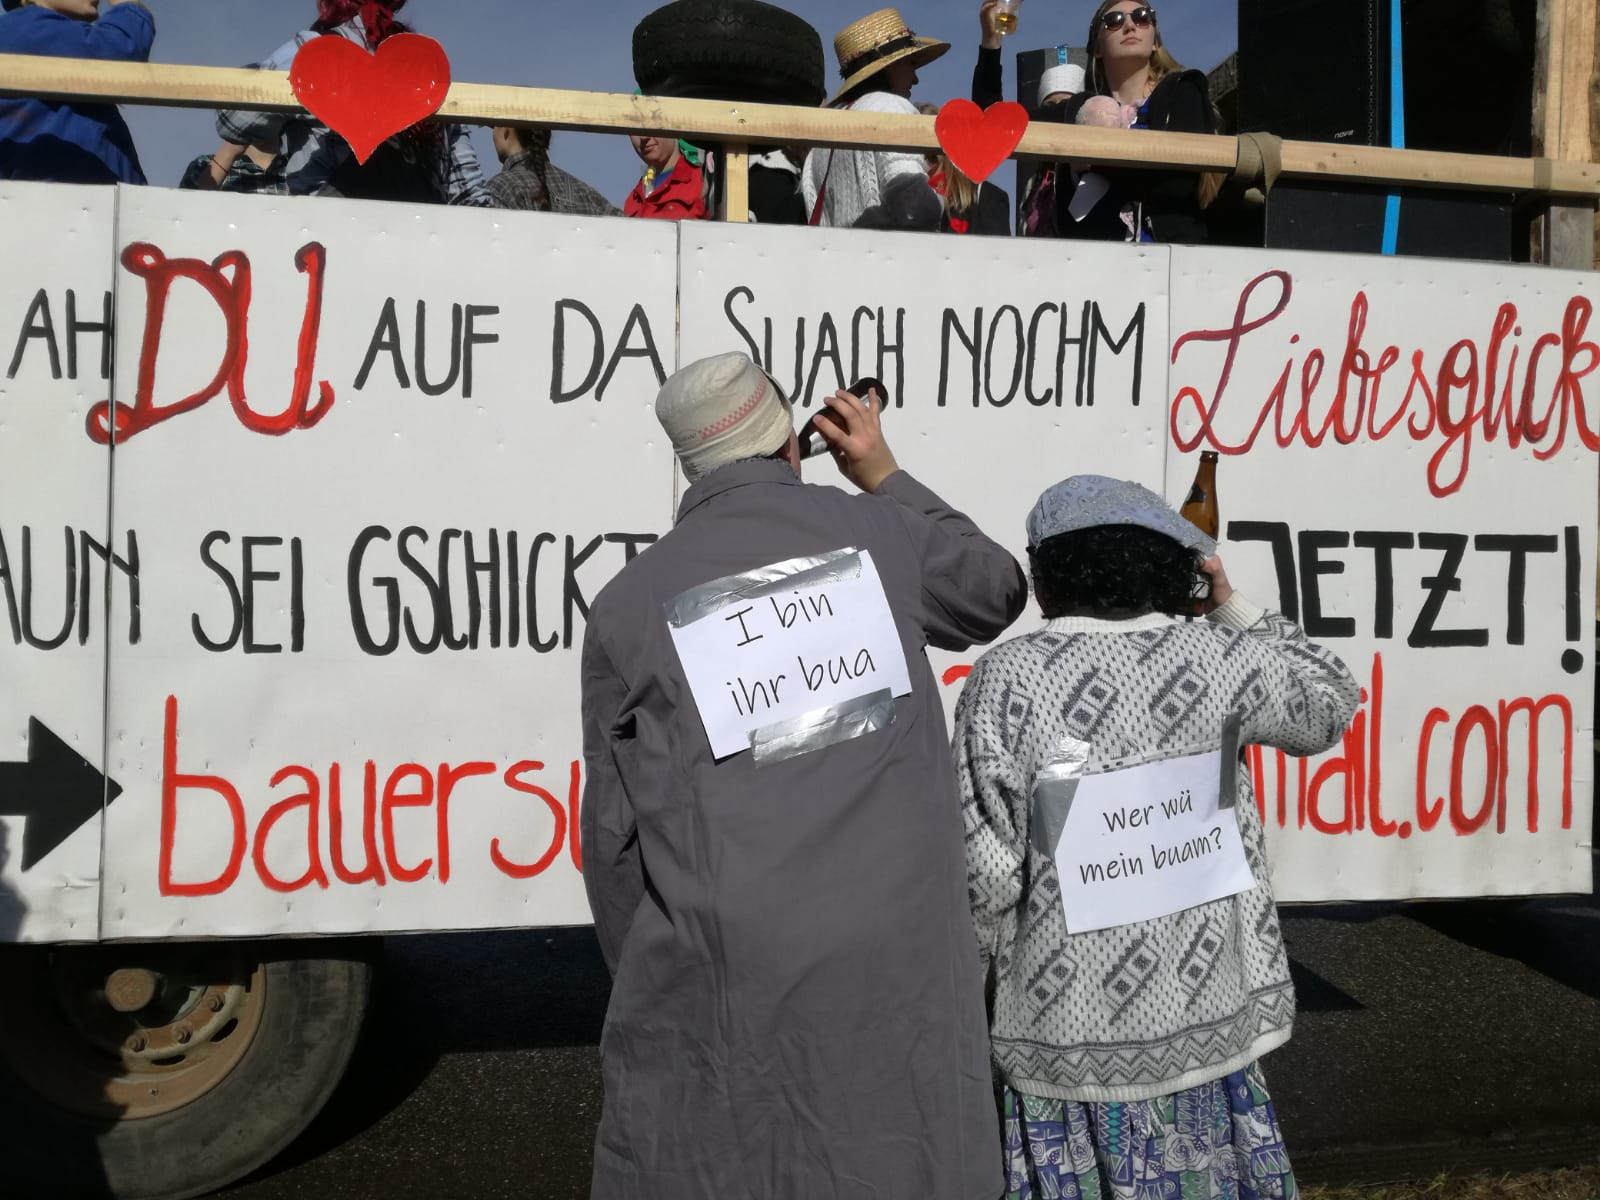 AH DU AUF DA SUACH NOCHM Liebesglick
SEI GSCHICKT JETZT!
mail.com
I bin
ihr bua
Wer wü
mein buam?
nova